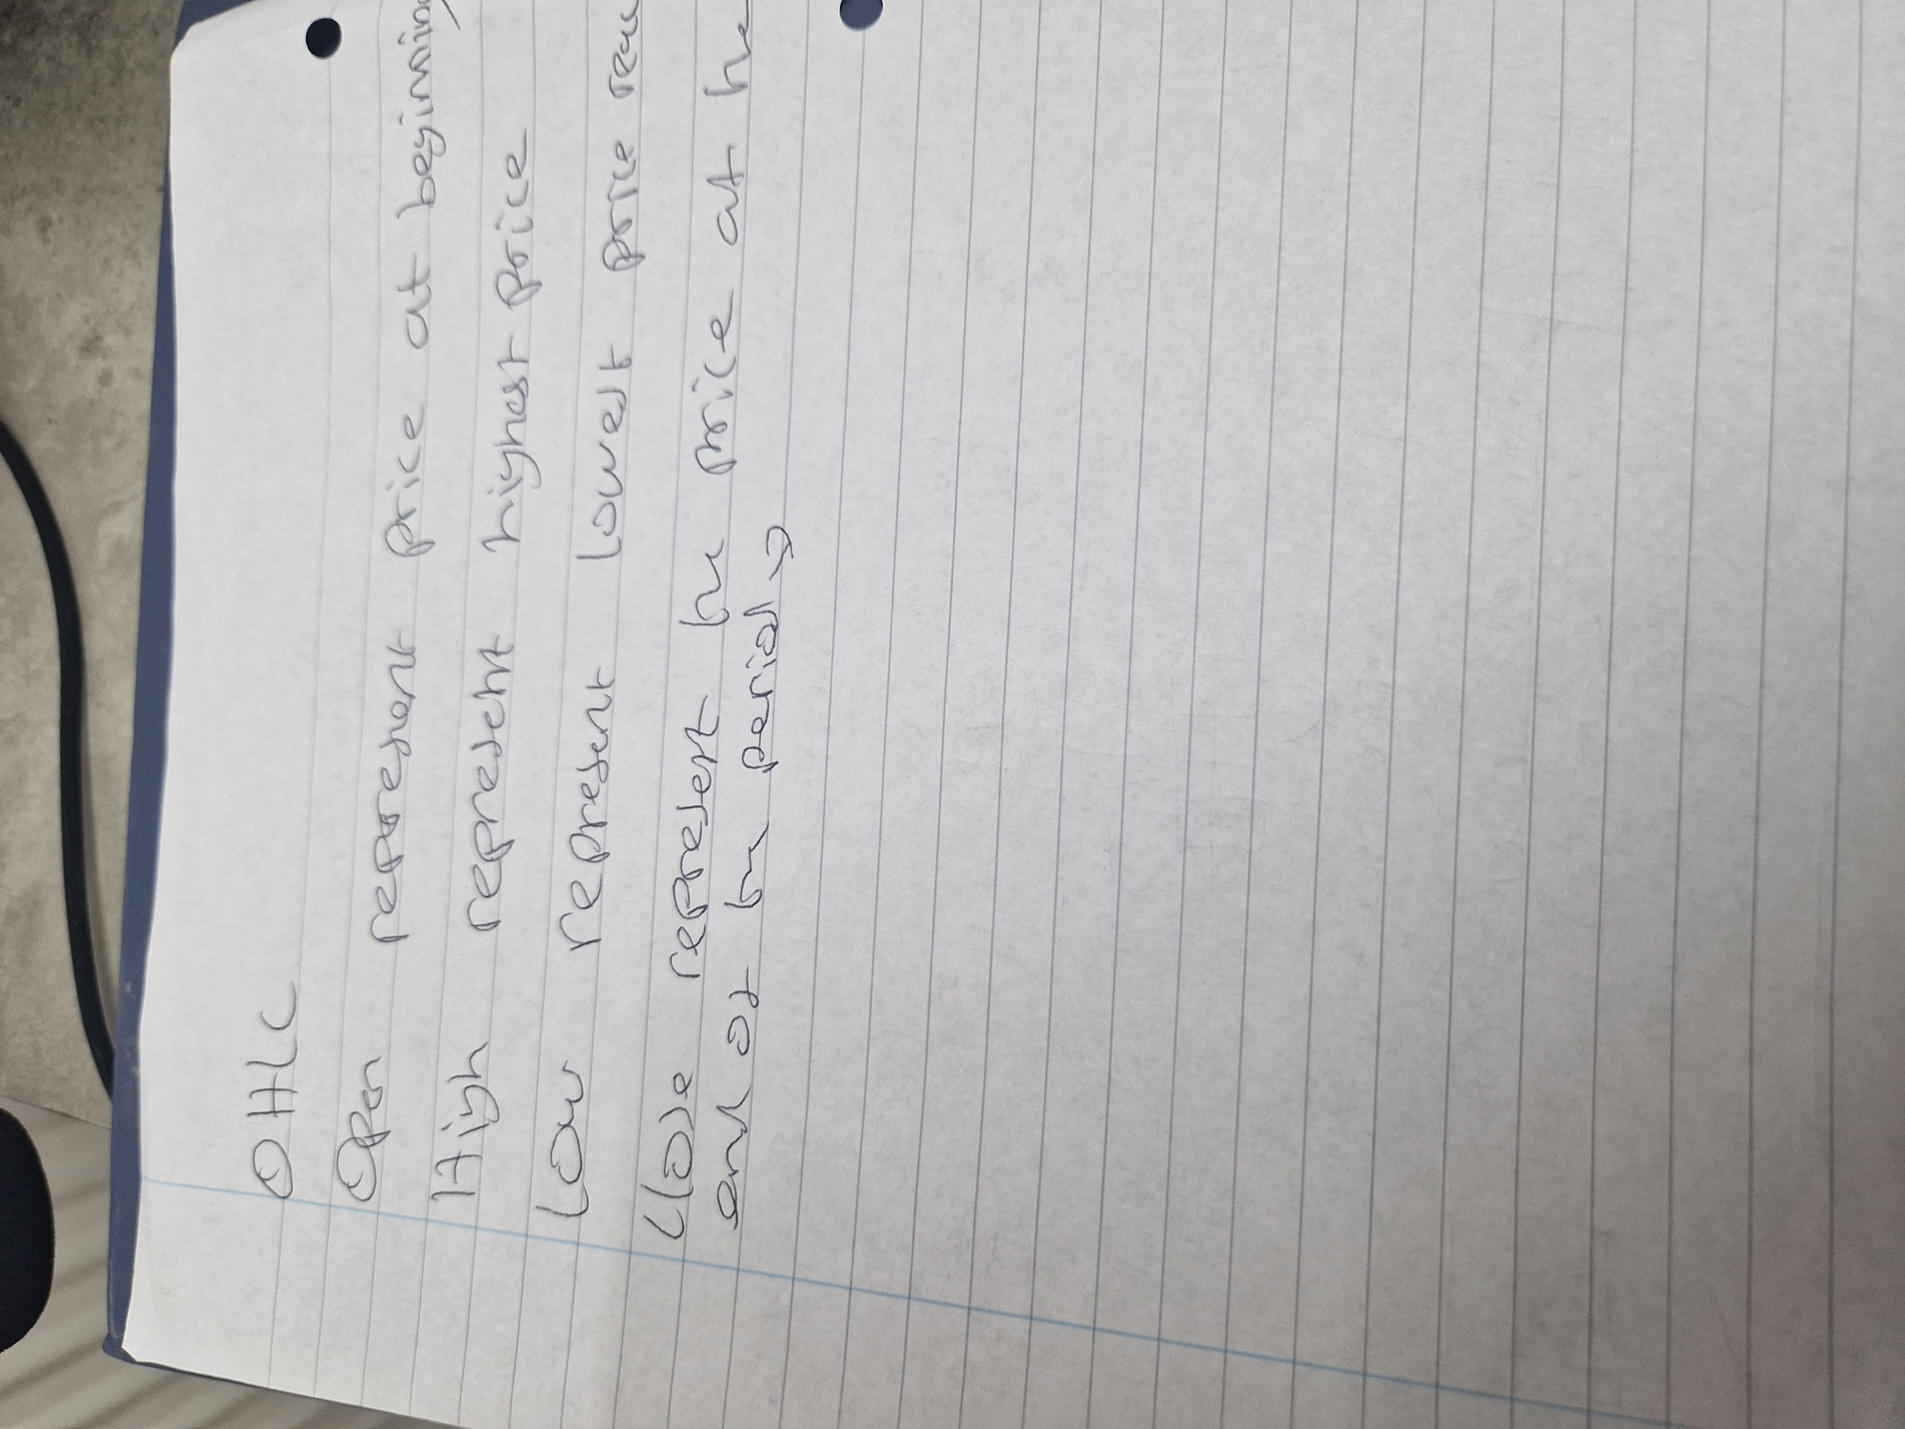 OHLC
Open represent price at beginning
High represent highest price
Low represent lowest price
Close represent the price at the
end of the period